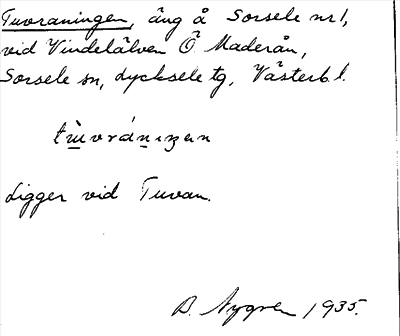 Tuvraningen, äng å Sorsele nr 1,
vid Vindelälven Ö Maderån,
Sorsele sn, Lycksele tg, Västerb. l.
Ligger vid Tuvan.
B. Nygren 1935.